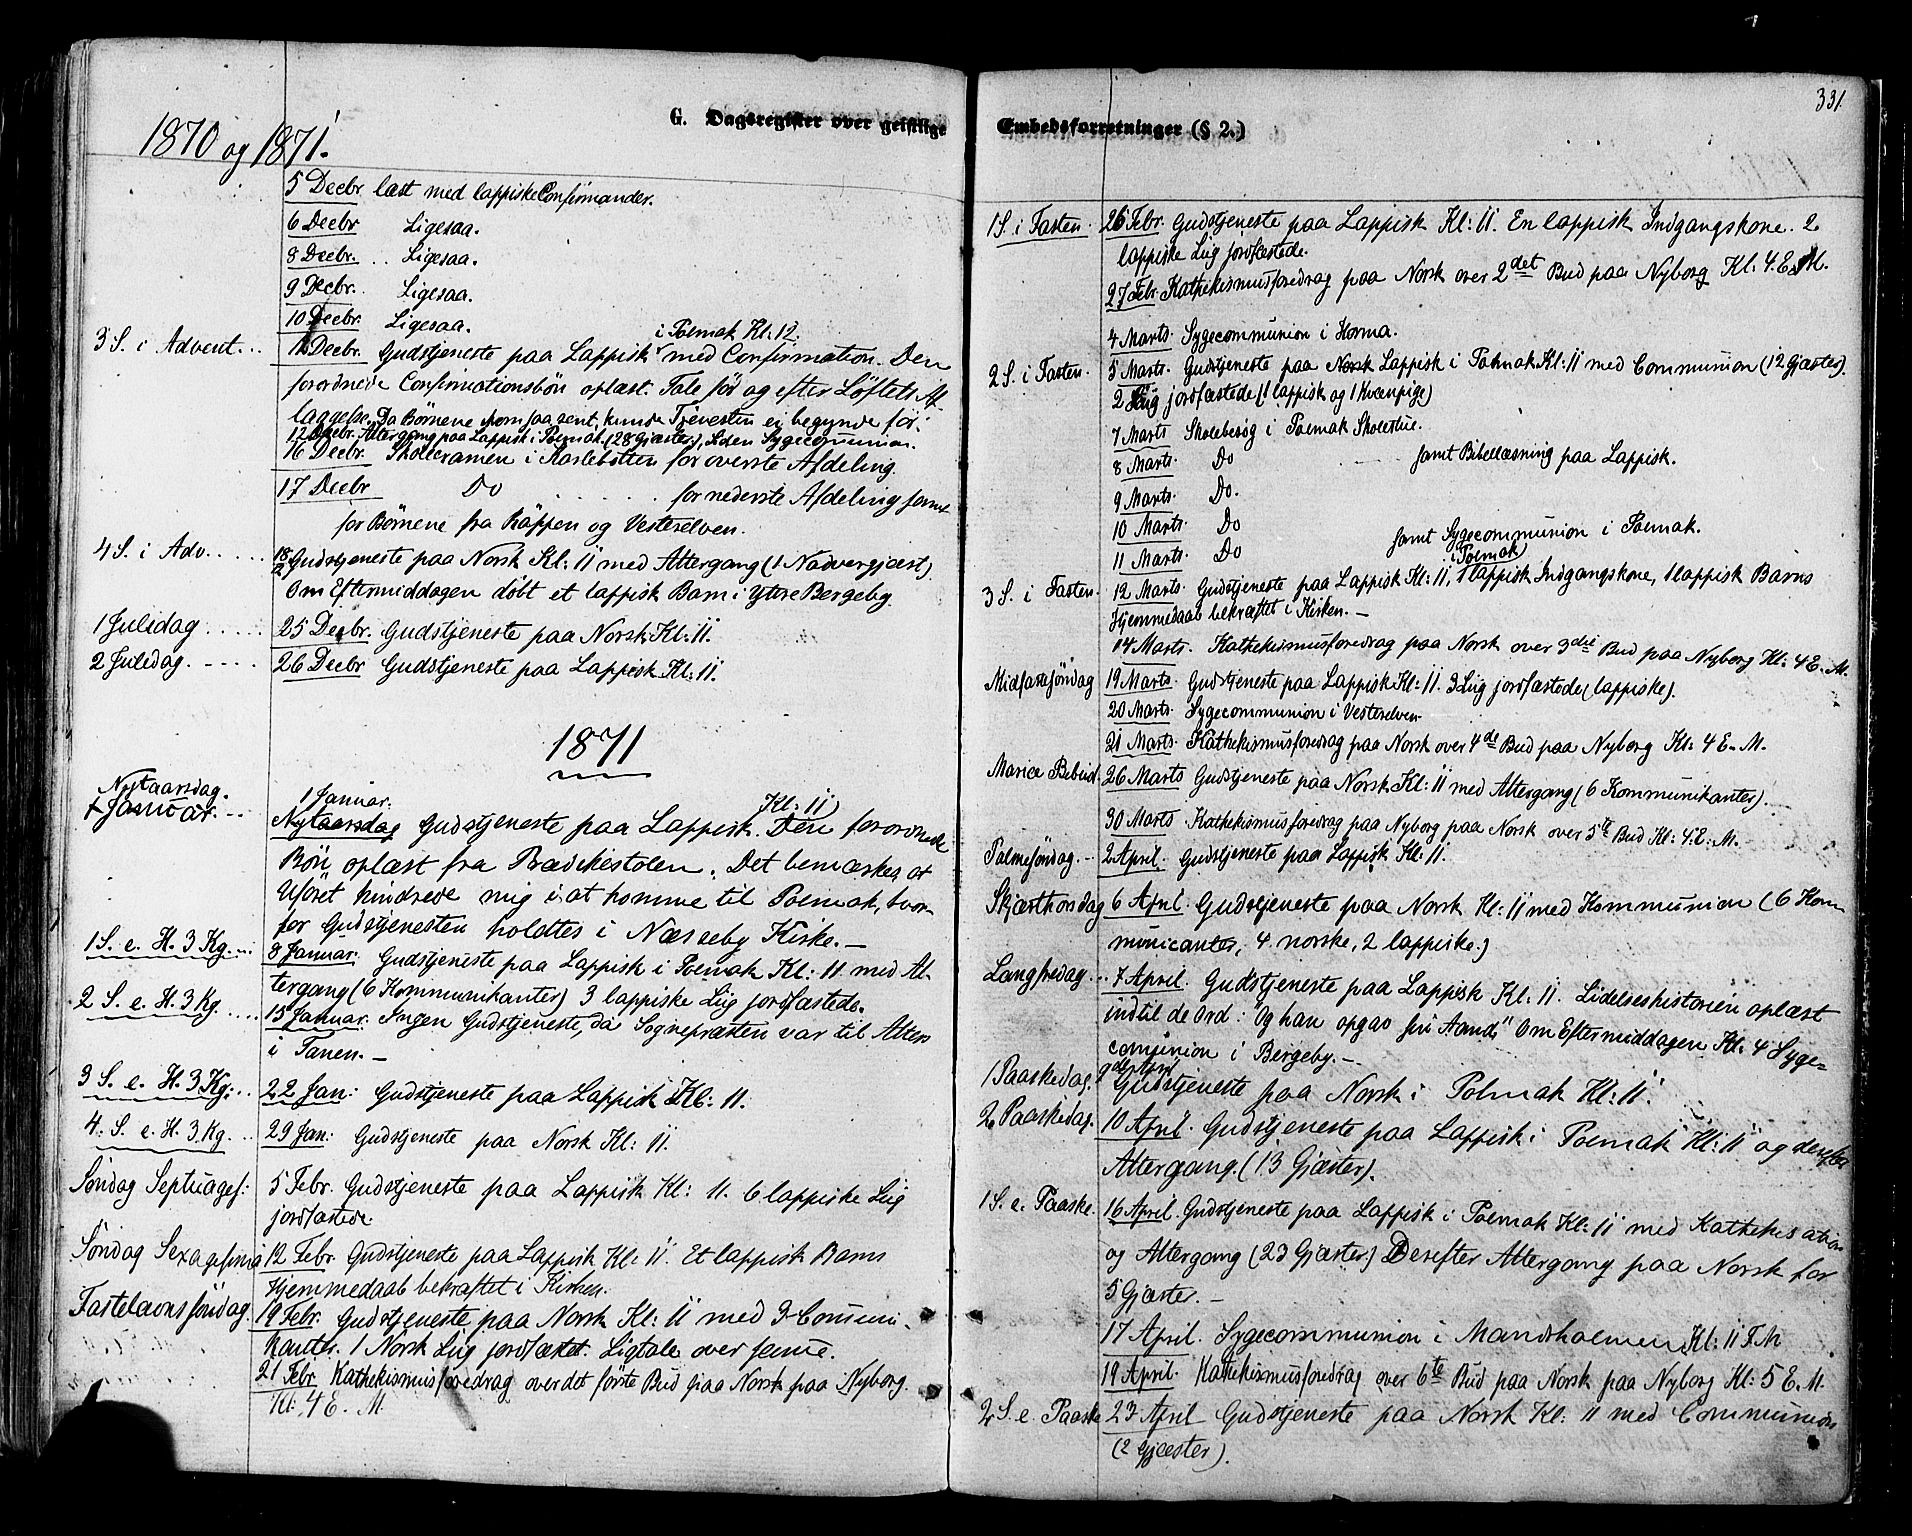 331.
G. Dagsregister over geistlige Embedsforretninger (§ 2.)
1870 og 1871.
5 Decbr læst med lappiske Confirmander.
6 Decbr Ligesaa.
8 Decbr. .. Ligesaa.
9 Decbr. Ligesaa.
10 Decbr. Ligesaa.
i Polmak Kl: 12.
3 S. i Advent... 11 Decbr. Gudstjeneste paa Lappisk med Confirmation. Den
forordnede Confirmationsbön oplæst. Tale för og efter Löftets Af-
læggelse. Da Börnene kom saa sent, kunde Tjenesten ei begynde för.
12 Decbr. Altergang paa Lappisk i Polmak (28 Gjæster), Siden Sygecommunion.
16 Decbr. Skoleexamen i Karlebotten for överste Afdeling.
17 Decbr Do ...... for nederste Afdeling samt
for Börnene fra Käppen og Vesterelven.
4 S. i Adv..... 18/12 Gudstjeneste paa Norsk Kl: 11 med Altergang (1 Nadvergjæst).
Om Eftermiddagen döbt et lappisk Barn i Ytre Bergeby.
1 Juledag ..... 25 Decbr. Gudstjeneste paa Norsk Kl: 11.
2 Juledag. ---- 26 Decbr Gudstjeneste paa Lappisk Kl: 11.
1871
Nytaarsdag.
1 Januar. -- 1 Januar.
Kl: 11
Nytaarsdag Gudstjeneste paa Lappisk. Den forordnede
Bön oplæst fra Prædikestolen. Det bemærkes, at
Uföret hindrede mig i at komme til Polmak, hvor-
for Gudstjenesten holdtes i Næsseby Kirke. —
1 S. e. H. 3 Kg. ... 8 Januar. Gudstjeneste paa Lappisk i Polmak Kl: 11 med Al-
tergang (6 Kommunikanter) 3 lappiske Liig jordfæstede.
2 S. e. H. 3 Kg. .... 15 Januar. Ingen Gudstjeneste, da Sognepræsten var til Alters
i Tanen. —
3 S. e. H. 3 Kg: .. 22 Jan: Gudstjeneste paa Lappisk Kl: 11.
4. S. e. H. 3 Kg. .. 29 Jan: Gudstjeneste paa Norsk Kl: 11.
Söndag Septuages: 5 Febr. Gudstjeneste paa Lappisk Kl: 11. 6 lappiske Liig
jordfæstede
Söndag Sexagesima 12 Febr. Gudstjeneste paa Lappisk Kl: 11. Et lappisk Barns
Hjemmedaab bekræftet i Kirken.
Fastelavnssöndag. 19 Febr. Gudstjeneste paa Norsk Kl: 11 med 3 Commu-
kanter. 1 Norsk Liig jordfæstet. Ligtale over samme.
21 Febr Kathekismusforedrag over det förste Bud paa Norsk paa Nyborg.
Kl: 4 E. M.
1 S. i Fasten. 26 Febr. Gudstjeneste paa Lappisk Kl: 11. En lappisk Indgangskone. 2
lappiske Liig jordfæstede.
27 Febr Kathekismusforedrag paa Norsk over 2det Bud paa Nyborg Kl: 4. E. M.
4 Marts Sygecommunion i Horma.
2 S. i Fasten. 5 Marts. Gudstjeneste paa Norsk Lappisk i Polmak Kl: 11 med Communion (12 Gjæster).
2 Liig jordfæstede (1 lappisk og 1 Kvænpige)
7 Marts Skolebesög i Polmak Skolestue.
8 Marts. Do samt Bibellæsning paa Lappisk.
9 Marts. Do.
10 Marts. Do
11 Marts. Do samt Sygecommunion i Polmak.
i Polmak
3 S. i Fasten. 12 Marts. Gudstjeneste paa Lappisk Kl: 11, 1 lappisk Indgangskone, 1 lappisk Barns
Hjemmedaab bekræftet i Kirken. —
14 Marts. Kathekismusforedrag paa Norsk over 3die Bud paa Nyborg Kl: 4 E. M.
Midfastesöndag 19 Marts. Gudstjeneste paa Lappisk Kl: 11. 3 Liig jordfæstede (lappiske).
20 Marts. Sygecommunion i Vesterelven.
21 Marts. Kathekismusforedrag paa Norsk over 4de Bud paa Nyborg Kl: 4 E. M.
Mariæ Bebud. 26 Marts Gudstjeneste paa Norsk Kl: 11 med Altergang (6 Kommunikanter).
30 Marts. Kathekismusforedrag paa Nyborg paa Norsk over 5te Bud Kl: 4. E. M.
Palmesöndag. .. 2 April. Gudstjeneste paa Lappisk Kl: 11.
Skjærthorsdag 6 April. Gudstjeneste paa Norsk Kl: 11 med Kommunion (6 Kom-
municanter, 4 norske, 2 lappiske.)
Langfredag... 7 April. Gudstjeneste paa Lappisk Kl: 11. Lidelseshistorien oplæst
indtil de Ord: "Og han opgav sin Aand." Om Eftermiddagen Kl: 4 Syge-
communion i Bergeby. —
1 Paaskedag. 9de April
Gudstjeneste paa Norsk i Polmak Kl: 11.
2 Paaskedag. 10 April. Gudstjeneste paa Lappisk i Polmak Kl: 11 og derefter
Altergang. (13 Gjæster).
1 S. e. Paaske. 16 April. Gudstjeneste paa Lappisk i Polmak Kl: 11 med Kathekisation
og Altergang (23 Gjæster.) Derefter Altergang paa Norsk for
5 Gjæster. —
17 April. Sygecommunion i Mandsholmen Kl: 11 F. M
19 April. Kathekismusforedrag over 6te Bud paa Norsk paa Nyborg Kl: 5 E. M.
2 S. e. Paaske 23 April Gudstjeneste paa Norsk Kl: 11 med Communion
(2 Gjæster).